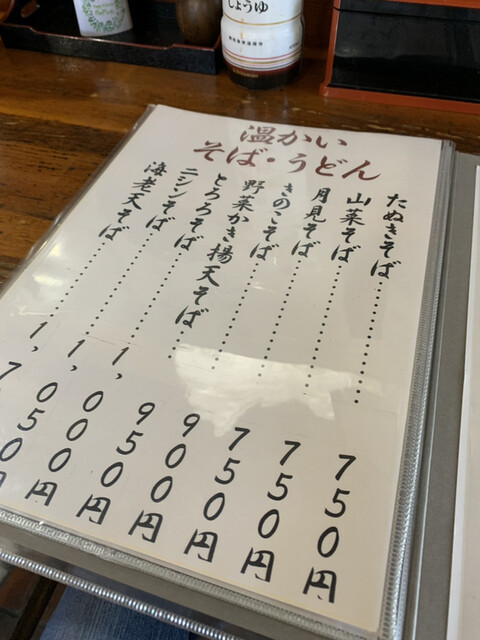 しょうゆ
温かい
そば・うどん
たぬきそば………750円
山菜そば………750円
月見そば………750円
きのこそば………900円
野菜かき揚天そば………950円
とろろそば………1,000円
ニシンそば………1,050円
海老天そば………1,7